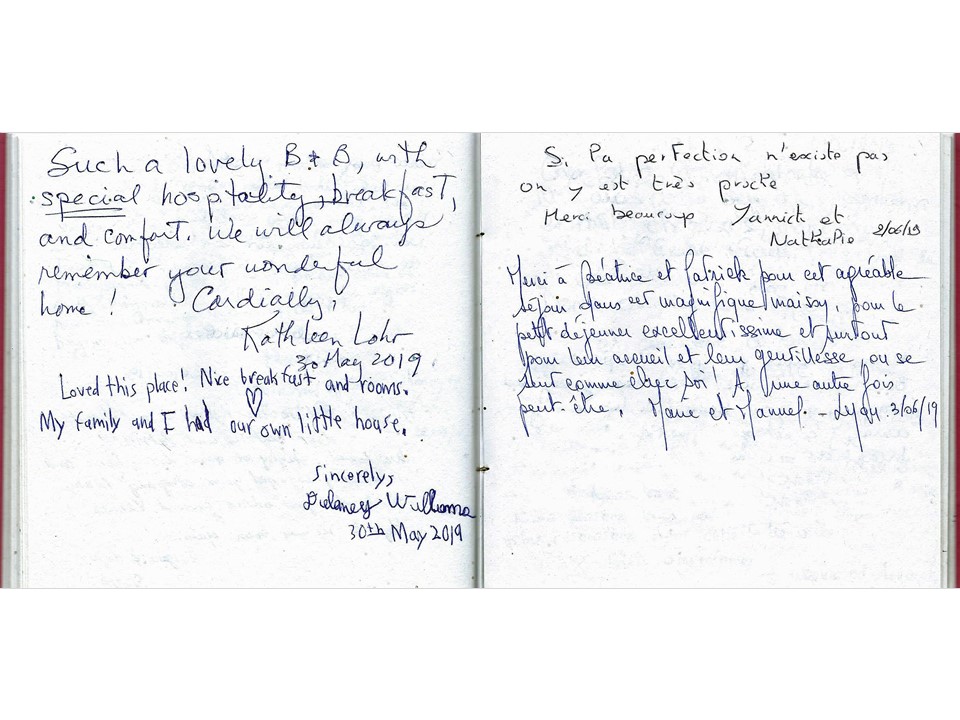 Such a lovely B & B, with
special hospitality, breakfast,
and comfort. We will always
remember your wonderful
home! Cordially,
Kathleen Lohr
30 May 2019
Loved this place! Nice breakfast and rooms.
My family and I had our own little house.
Sincerelys
Delaney Williams
30th May 2019
Si la perfection n'existe pas
on y est très proche
Merci beaucoup Yannick et
Nathalie 2/06/19
Merci à Béatrice et Patrick pour cet agréable
séjour dans cet magnifique maison, pour le
petit déjeuner excellentissime et surtout
pour leur accueil et leur gentillesse, ou se
sent comme chez soi! A une autre fois
peut-être. Marie et Manuel - Lyon. 3/06/19